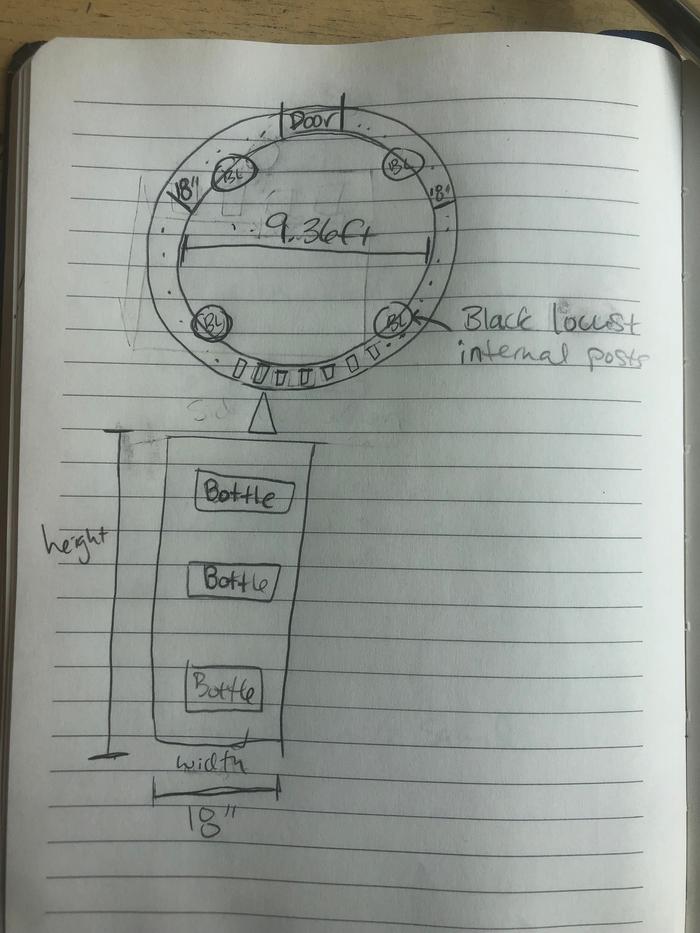 Door
BL
BL
18"
18"
9.36ft
BL
BL
Black locust
internal posts
Bottle
height
Bottle
Bottle
width
18"